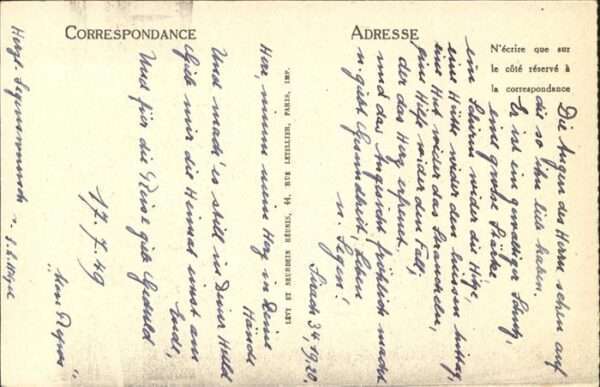 CORRESPONDANCE
ADRESSE
N'écrire que sur
le côté réservé à
la correspondance
LÉVY ET NEURDEIN RÉUNIS, 44, RUE LETELLIER, PARIS, IMP.
Die Augen des Herrn sehen auf
die so Ihn lieb haben.
Er ist ein gewaltiger Schutz,
eine große Stärke
ein Schirm wider die Hitze,
eine Hütte wider den heissen Mittag,
eine Hut wider das Straucheln,
eine Hilf wider den Fall,
der das Herz erfreut
und das Angesicht fröhlich macht
u. gibt Gesundheit, Leben
u. Segen!
Sirach 34,19.20.
Herr nimm mein Herz in Deine
Hände
Und mach' es still in Deiner Huld
Gieb mir die Heimat einst am
Ende,
Und für die Reise gieb Geduld
17.7.49
Herzl. Segenswunsch